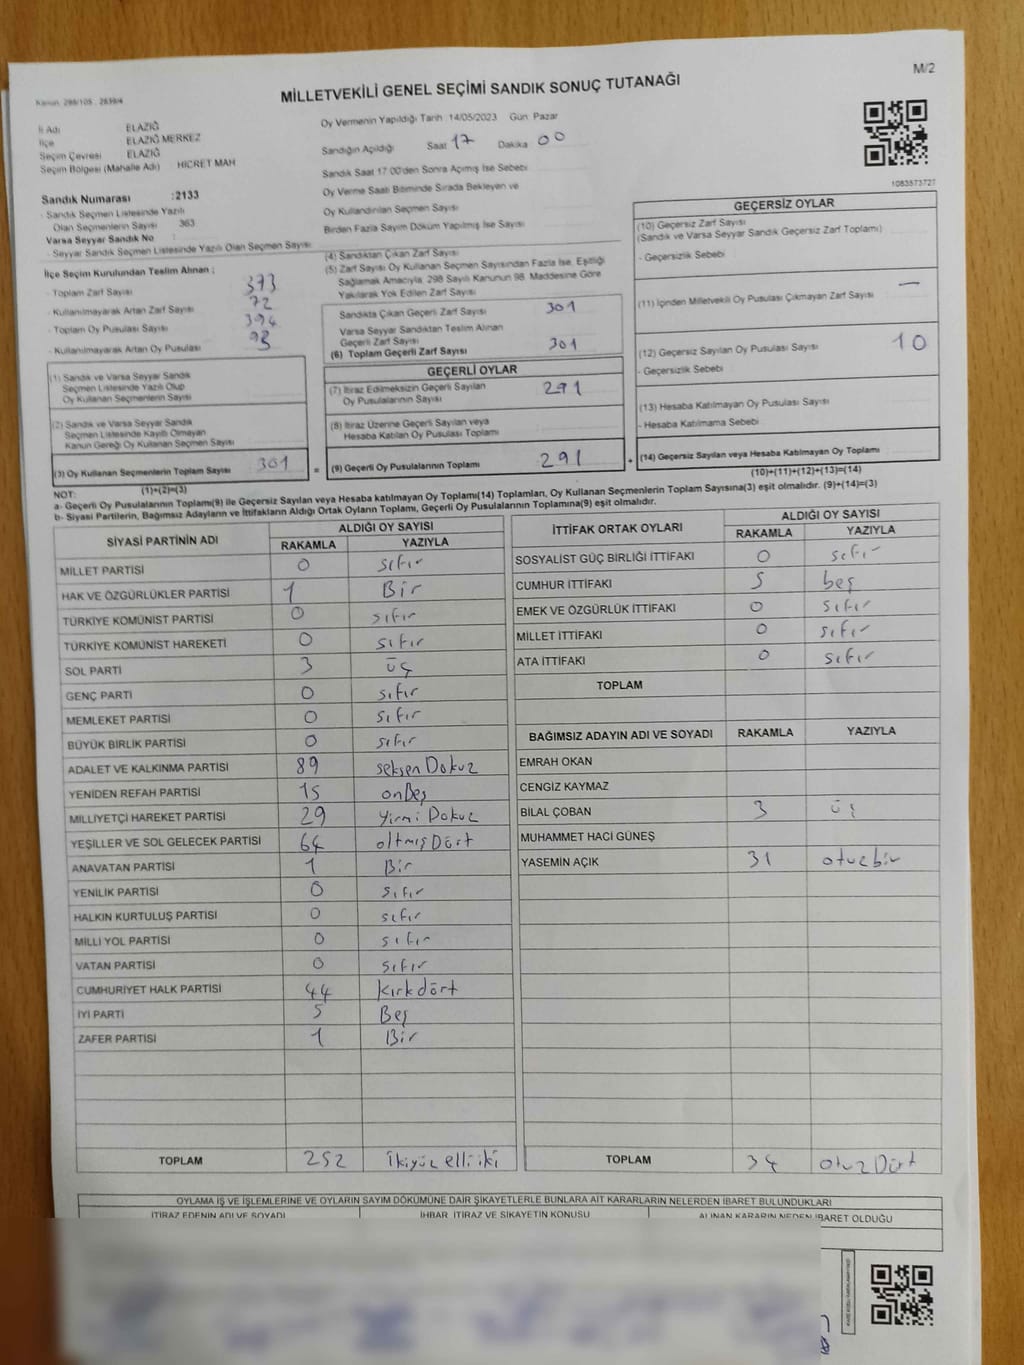 M/2
Kanun: 298/105 , 2839/4
MİLLETVEKİLİ GENEL SEÇİMİ SANDIK SONUÇ TUTANAĞI
İl Adı ELAZIĞ
İlçe ELAZIĞ MERKEZ
Seçim Çevresi ELAZIĞ
Seçim Bölgesi (Mahalle Adı) HİCRET MAH
Sandık Numarası :2133
- Sandık Seçmen Listesinde Yazılı
Olan Seçmenlerin Sayısı 363
Varsa Seyyar Sandık No :
- Seyyar Sandık Seçmen Listesinde Yazılı Olan Seçmen Sayısı
İlçe Seçim Kurulundan Teslim Alınan ;
- Toplam Zarf Sayısı 373
- Kullanılmayarak Artan Zarf Sayısı 72
- Toplam Oy Pusulası Sayısı 394
- Kullanılmayarak Artan Oy Pusulası 93
(1) Sandık ve Varsa Seyyar Sandık
Seçmen Listesinde Yazılı Olup
Oy Kullanan Seçmenlerin Sayısı
(2) Sandık ve Varsa Seyyar Sandık
Seçmen Listesinde Kayıtlı Olmayan
Kanun Gereği Oy Kullanan Seçmen Sayısı
(3) Oy Kullanan Seçmenlerin Toplam Sayısı 301 =
(1)+(2)=(3)
Oy Vermenin Yapıldığı Tarih :14/05/2023 Gün: Pazar
Sandığın Açıldığı Saat 17 Dakika 00
Sandık Saat 17:00'den Sonra Açılmış İse Sebebi
Oy Verme Saati Bitiminde Sırada Bekleyen ve
Oy Kullandırılan Seçmen Sayısı
Birden Fazla Sayım Döküm Yapılmış İse Sayısı
(4) Sandıktan Çıkan Zarf Sayısı
(5) Zarf Sayısı Oy Kullanan Seçmen Sayısından Fazla İse, Eşitliği
Sağlamak Amacıyla, 298 Sayılı Kanunun 98. Maddesine Göre
Yakılarak Yok Edilen Zarf Sayısı
Sandıkta Çıkan Geçerli Zarf Sayısı 301
Varsa Seyyar Sandıktan Teslim Alınan
Geçerli Zarf Sayısı
(6) Toplam Geçerli Zarf Sayısı 301
GEÇERLİ OYLAR
(7) İtiraz Edilmeksizin Geçerli Sayılan
Oy Pusulalarının Sayısı 291
(8) İtiraz Üzerine Geçerli Sayılan veya
Hesaba Katılan Oy Pusulası Toplamı
(9) Geçerli Oy Pusulalarının Toplamı 291 +
1083573727
GEÇERSİZ OYLAR
(10) Geçersiz Zarf Sayısı
(Sandık ve Varsa Seyyar Sandık Geçersiz Zarf Toplamı)
- Geçersizlik Sebebi
(11) İçinden Milletvekili Oy Pusulası Çıkmayan Zarf Sayısı —
(12) Geçersiz Sayılan Oy Pusulası Sayısı 10
- Geçersizlik Sebebi
(13) Hesaba Katılmayan Oy Pusulası Sayısı
- Hesaba Katılmama Sebebi
(14) Geçersiz Sayılan veya Hesaba Katılmayan Oy Toplamı
(10)+(11)+(12)+(13)=(14)
NOT:
a- Geçerli Oy Pusulalarının Toplamı(9) ile Geçersiz Sayılan veya Hesaba katılmayan Oy Toplamı(14) Toplamları, Oy Kullanan Seçmenlerin Toplam Sayısına(3) eşit olmalıdır. (9)+(14)=(3)
b- Siyasi Partilerin, Bağımsız Adayların ve İttifakların Aldığı Ortak Oyların Toplamı, Geçerli Oy Pusulalarının Toplamına(9) eşit olmalıdır.
SİYASİ PARTİNİN ADI ALDIĞI OY SAYISI
RAKAMLA YAZIYLA
MİLLET PARTİSİ 0 sıfır
HAK VE ÖZGÜRLÜKLER PARTİSİ 1 Bir
TÜRKİYE KOMÜNİST PARTİSİ 0 sıfır
TÜRKİYE KOMÜNİST HAREKETİ 0 sıfır
SOL PARTİ 3 üç
GENÇ PARTİ 0 sıfır
MEMLEKET PARTİSİ 0 sıfır
BÜYÜK BİRLİK PARTİSİ 0 sıfır
ADALET VE KALKINMA PARTİSİ 89 seksen Dokuz
YENİDEN REFAH PARTİSİ 15 onBeş
MİLLİYETÇİ HAREKET PARTİSİ 29 yirmi Dokuz
YEŞİLLER VE SOL GELECEK PARTİSİ 64 altmış Dört
ANAVATAN PARTİSİ 1 Bir
YENİLİK PARTİSİ 0 sıfır
HALKIN KURTULUŞ PARTİSİ 0 sıfır
MİLLİ YOL PARTİSİ 0 sıfır
VATAN PARTİSİ 0 sıfır
CUMHURİYET HALK PARTİSİ 44 Kırkdört
İYİ PARTİ 5 Beş
ZAFER PARTİSİ 1 Bir
TOPLAM 252 ikiyüz elli iki
İTTİFAK ORTAK OYLARI ALDIĞI OY SAYISI
RAKAMLA YAZIYLA
SOSYALİST GÜÇ BİRLİĞİ İTTİFAKI 0 sıfır
CUMHUR İTTİFAKI 5 beş
EMEK VE ÖZGÜRLÜK İTTİFAKI 0 sıfır
MİLLET İTTİFAKI 0 sıfır
ATA İTTİFAKI 0 sıfır
TOPLAM
BAĞIMSIZ ADAYIN ADI VE SOYADI RAKAMLA YAZIYLA
EMRAH OKAN
CENGİZ KAYMAZ
BİLAL ÇOBAN 3 üç
MUHAMMET HACİ GÜNEŞ
YASEMİN AÇIK 31 otuzbir
TOPLAM 34 otuz Dört
OYLAMA İŞ VE İŞLEMLERİNE VE OYLARIN SAYIM DÖKÜMÜNE DAİR ŞİKAYETLERLE BUNLARA AİT KARARLARIN NELERDEN İBARET BULUNDUKLARI
İTİRAZ EDENİN ADI VE SOYADI İHBAR, İTİRAZ VE ŞİKAYETİN KONUSU ALINAN KARARIN NEDEN İBARET OLDUĞU